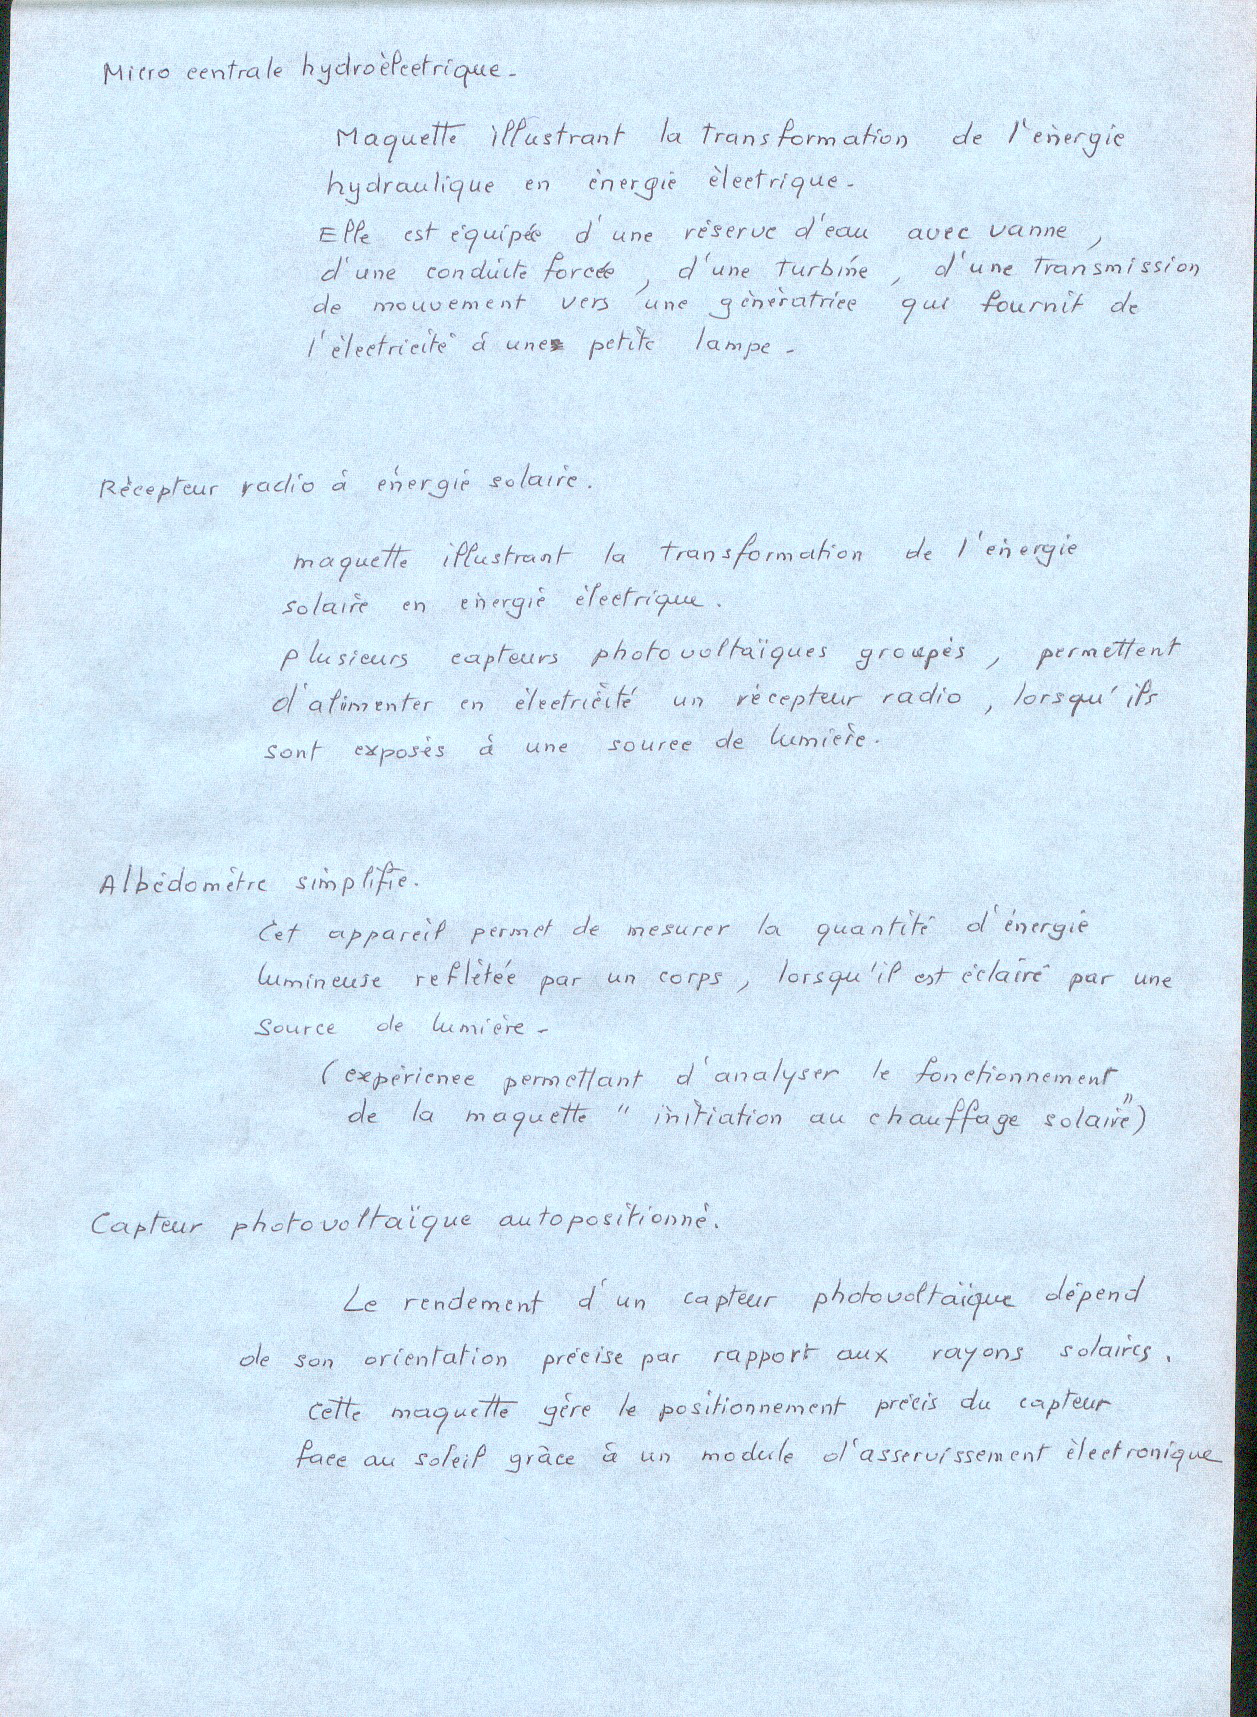 Micro centrale hydroélectrique -
Maquette illustrant la transformation de l'énergie
hydraulique en énergie électrique -
Elle est équipée d'une réserve d'eau avec vanne,
d'une conduite forcée, d'une turbine, d'une transmission
de mouvement vers une génératrice qui fournit de
l'électricité à une petite lampe -
Récepteur radio à énergie solaire.
maquette illustrant la transformation de l'énergie
solaire en énergie électrique.
plusieurs capteurs photovoltaïques groupés, permettent
d'alimenter en électricité un récepteur radio, lorsqu'ils
sont exposés à une source de lumière.
Albédomètre simplifié.
Cet appareil permet de mesurer la quantité d'énergie
lumineuse reflétée par un corps, lorsqu'il est éclairé par une
source de lumière -
(expérience permettant d'analyser le fonctionnement
de la maquette "initiation au chauffage solaire")
Capteur photovoltaïque autopositionné.
Le rendement d'un capteur photovoltaïque dépend
de son orientation précise par rapport aux rayons solaires.
Cette maquette gère le positionnement précis du capteur
face au soleil grâce à un module d'asservissement électronique